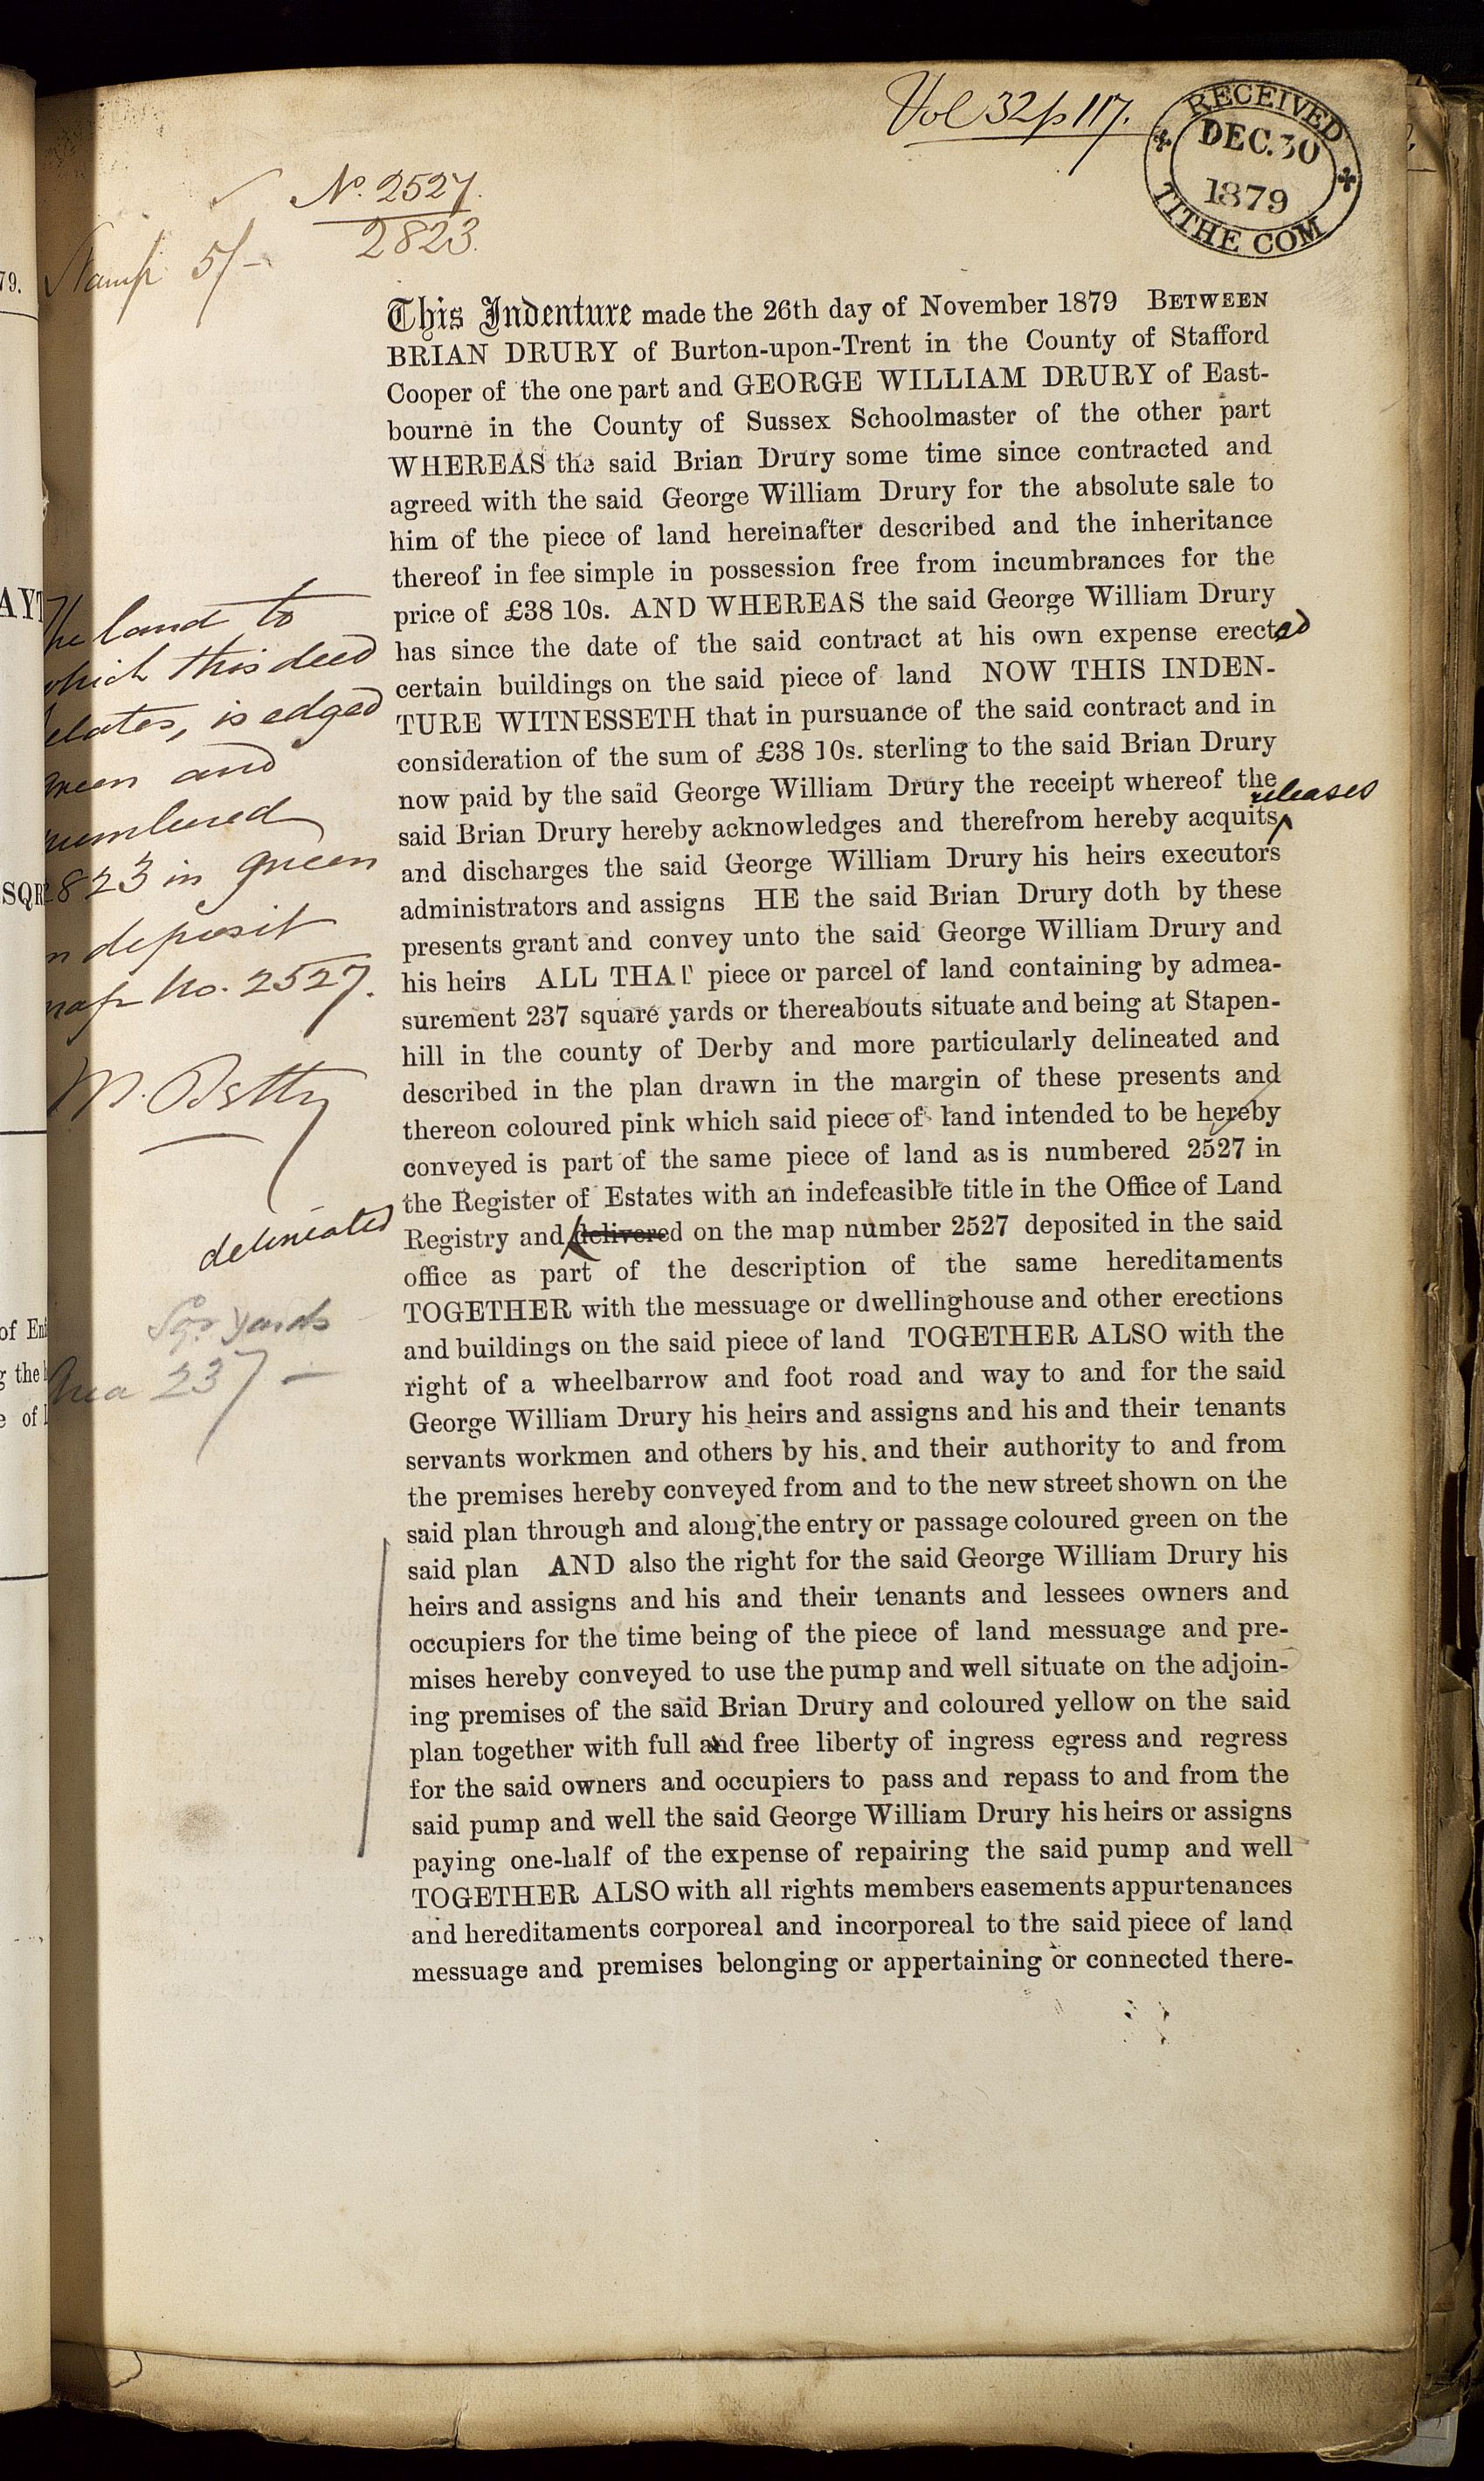 Vol 32 p 117.
RECEIVED
DEC. 30
1879
TITHE COM
No. 2527.
2823.
Stamp 5/-
This Indenture made the 26th day of November 1879 BETWEEN
BRIAN DRURY of Burton-upon-Trent in the County of Stafford
Cooper of the one part and GEORGE WILLIAM DRURY of East-
bourne in the County of Sussex Schoolmaster of the other part
WHEREAS the said Brian Drury some time since contracted and
agreed with the said George William Drury for the absolute sale to
him of the piece of land hereinafter described and the inheritance
thereof in fee simple in possession free from incumbrances for the
price of £38 10s. AND WHEREAS the said George William Drury
has since the date of the said contract at his own expense erected
certain buildings on the said piece of land NOW THIS INDEN-
TURE WITNESSETH that in pursuance of the said contract and in
consideration of the sum of £38 10s. sterling to the said Brian Drury
now paid by the said George William Drury the receipt whereof the
releases
said Brian Drury hereby acknowledges and therefrom hereby acquits
and discharges the said George William Drury his heirs executors
administrators and assigns HE the said Brian Drury doth by these
presents grant and convey unto the said George William Drury and
his heirs ALL THAT piece or parcel of land containing by admea-
surement 237 square yards or thereabouts situate and being at Stapen-
hill in the county of Derby and more particularly delineated and
described in the plan drawn in the margin of these presents and
thereon coloured pink which said piece of land intended to be hereby
conveyed is part of the same piece of land as is numbered 2527 in
the Register of Estates with an indefeasible title in the Office of Land
Registry and delivered on the map number 2527 deposited in the said
office as part of the description of the same hereditaments
TOGETHER with the messuage or dwellinghouse and other erections
and buildings on the said piece of land TOGETHER ALSO with the
right of a wheelbarrow and foot road and way to and for the said
George William Drury his heirs and assigns and his and their tenants
servants workmen and others by his and their authority to and from
the premises hereby conveyed from and to the new street shown on the
said plan through and along the entry or passage coloured green on the
said plan AND also the right for the said George William Drury his
heirs and assigns and his and their tenants and lessees owners and
occupiers for the time being of the piece of land messuage and pre-
mises hereby conveyed to use the pump and well situate on the adjoin-
ing premises of the said Brian Drury and coloured yellow on the said
plan together with full and free liberty of ingress egress and regress
for the said owners and occupiers to pass and repass to and from the
said pump and well the said George William Drury his heirs or assigns
paying one-half of the expense of repairing the said pump and well
TOGETHER ALSO with all rights members easements appurtenances
and hereditaments corporeal and incorporeal to the said piece of land
messuage and premises belonging or appertaining or connected there-
The land to
which this deed
relates, is edged
green and
numbered
2823 in green
on deposit
map No. 2527.
delineated
Sqr yards
Area 237 -
79.
AYT
SQR
of En
g the
e of